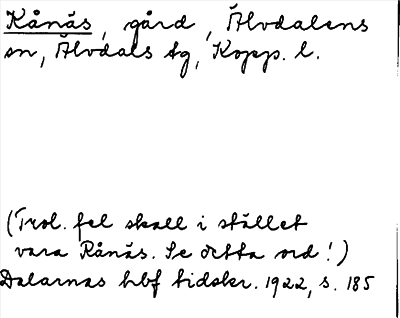 Kånäs, gård, Älvdalens
sn, Älvdals tg, Kopp. l.
(Trol. fel skall i stället
vara Rånäs. Se detta ord!)
Dalarnas hbf tidskr. 1922, s. 185